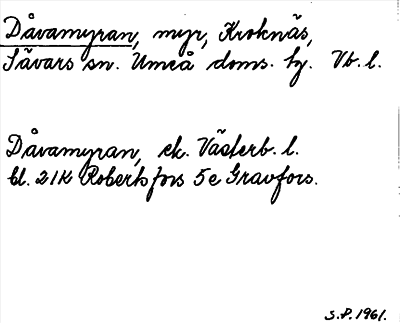 Dåvamyran, myr, Kroknäs,
Sävars sn. Umeå doms. hg. Vb. l.
Dåvamyran, ek. Västerb. l.
bl. 21K Robertsfors 5e Gravfors.
S.P. 1961.